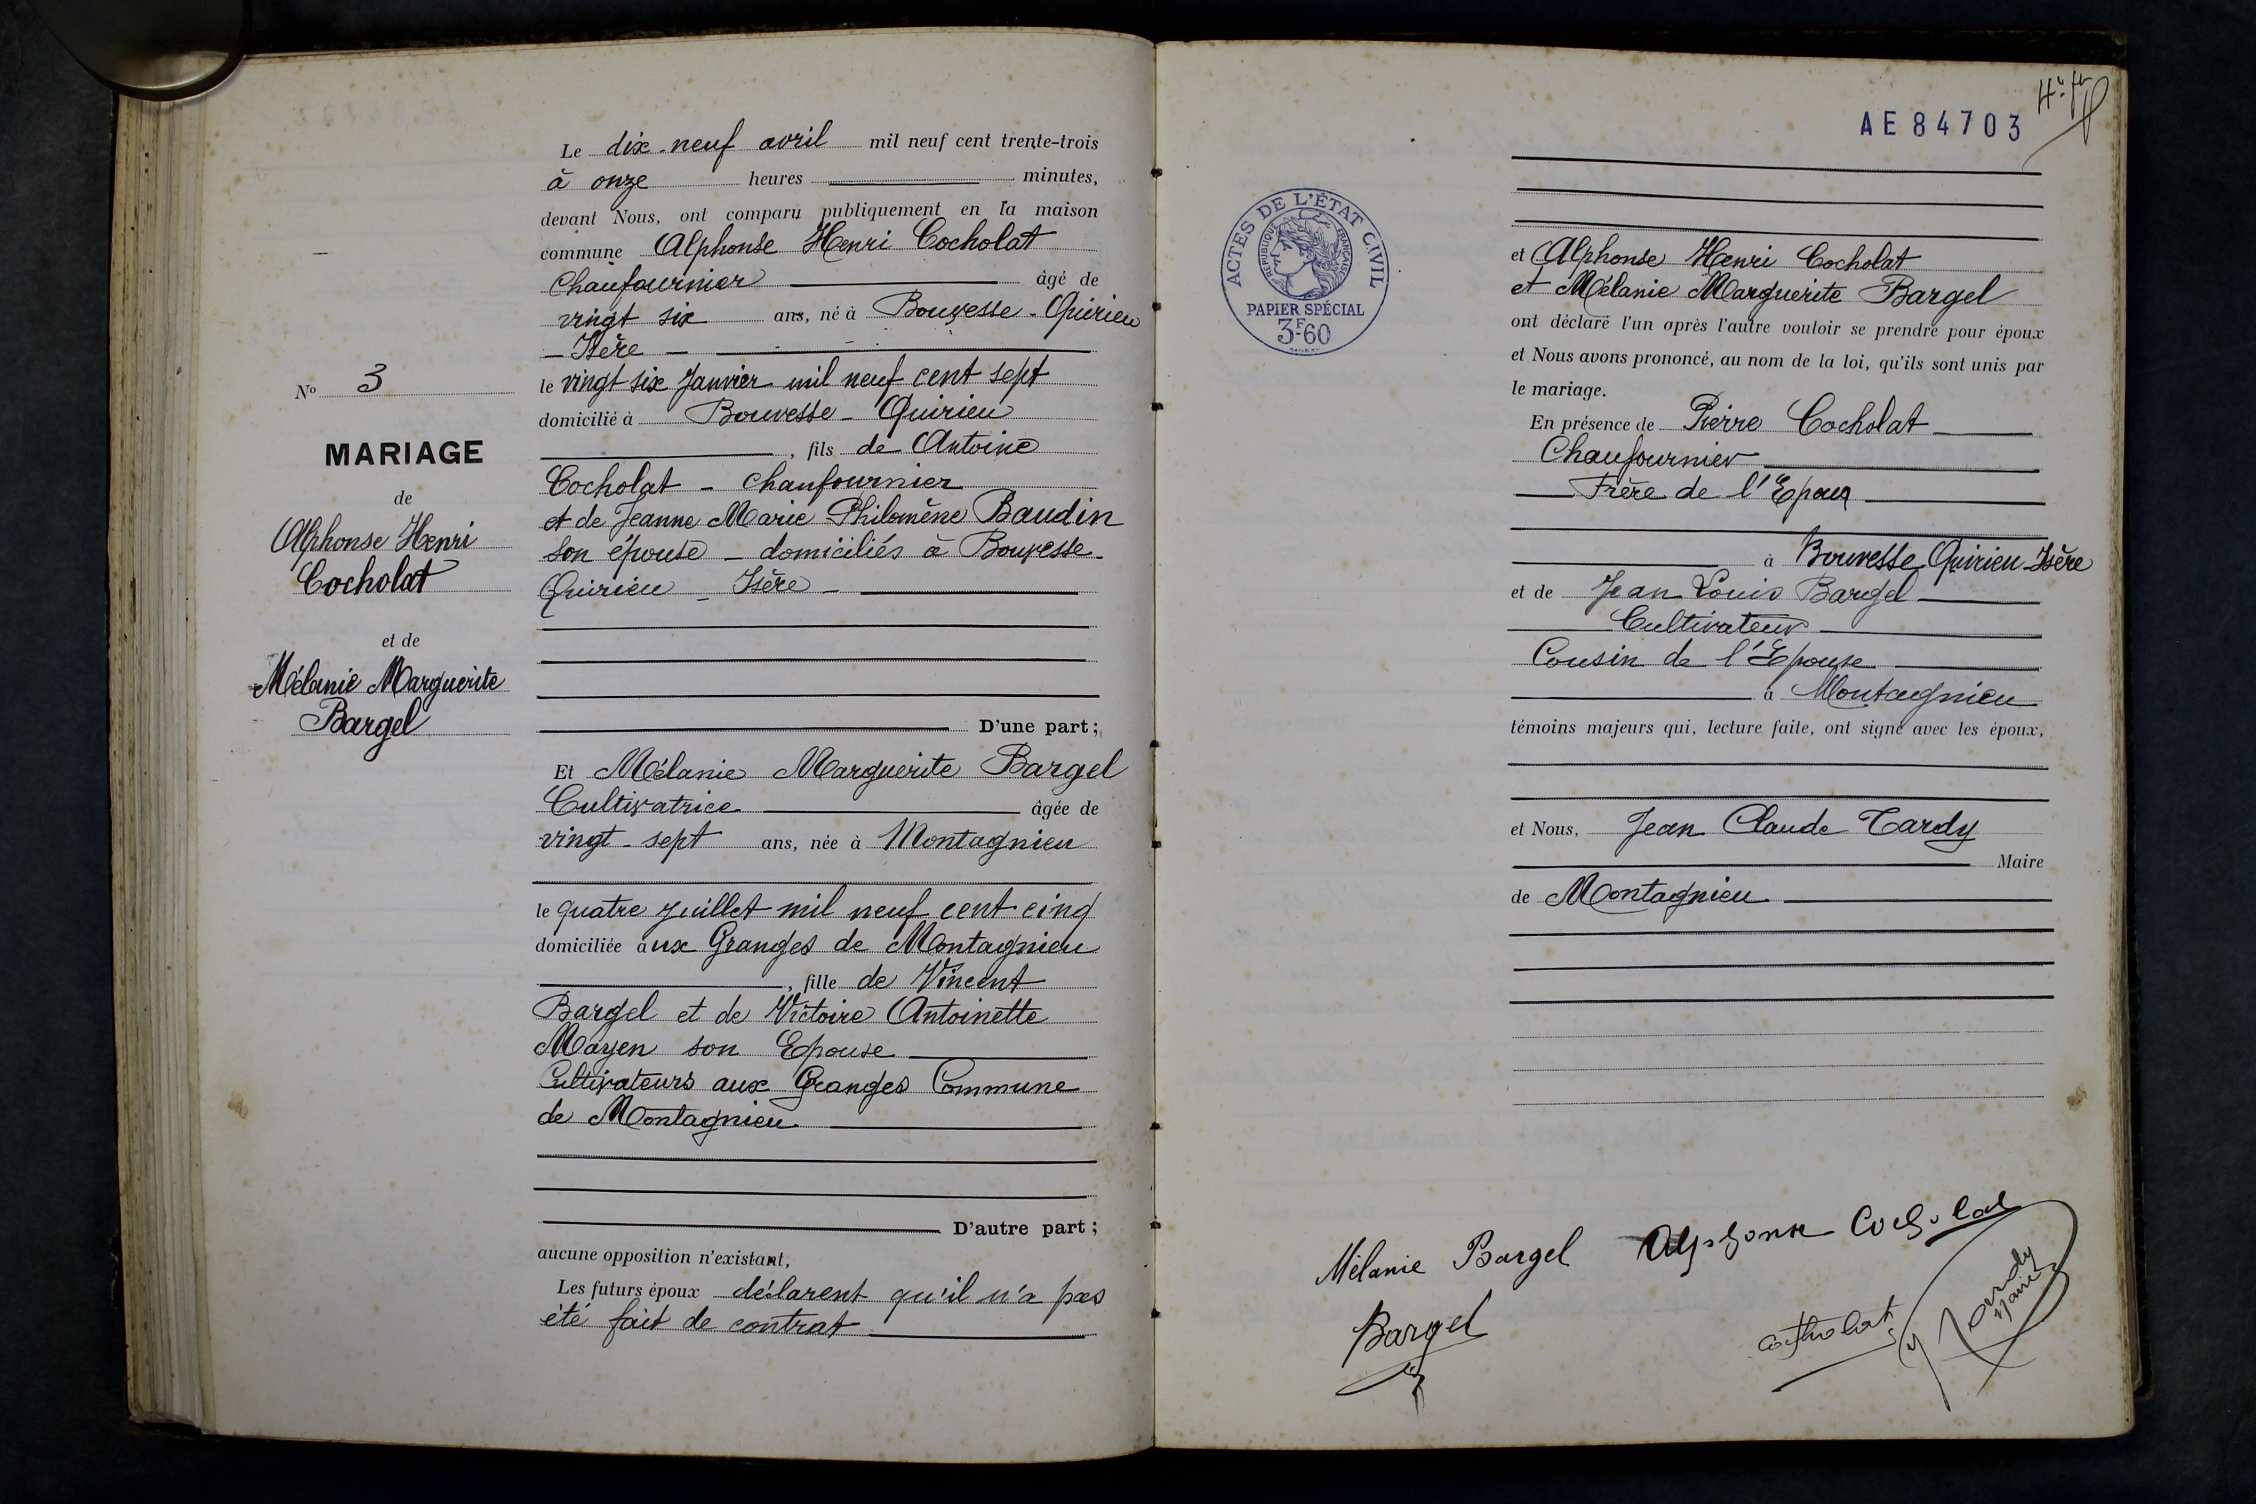 N° 3
MARIAGE
de
Alphonse Henri
Cocholat
et de
Mélanie Marguerite
Bargel
Le dix-neuf avril mil neuf cent trente-trois
à onze heures minutes,
devant Nous, ont comparu publiquement en la maison
commune Alphonse Henri Cocholat
Chaufournier âgé de
vingt six ans, né à Bouvesse-Quirieu
- Isère -
le vingt six Janvier mil neuf cent sept
domicilié à Bouvesse-Quirieu
, fils de Antoine
Cocholat - chaufournier
et de Jeanne Marie Philomène Baudin
son épouse - domiciliés à Bouvesse-
Quirieu - Isère -
D'une part;
Et Mélanie Marguerite Bargel
Cultivatrice âgée de
vingt-sept ans, née à Montagnieu
le quatre Juillet mil neuf cent cinq
domiciliée aux Granges de Montagnieu
, fille de Vincent
Bargel et de Victoire Antoinette
Mayen son Epouse
Cultivateurs aux Granges Commune
de Montagnieu
D'autre part;
aucune opposition n'existant,
Les futurs époux déclarent qu'il n'a pas
été fait de contrat
AE84703
ACTES DE L'ÉTAT CIVIL
RÉPUBLIQUE FRANÇAISE
PAPIER SPÉCIAL
3F60
et Alphonse Henri Cocholat
et Mélanie Marguerite Bargel
ont déclaré l'un après l'autre vouloir se prendre pour époux
et Nous avons prononcé, au nom de la loi, qu'ils sont unis par
le mariage.
En présence de Pierre Cocholat
Chaufournier
Frère de l'Epoux
à Bouvesse Quirieu-Isère
et de Jean Louis Bargel
Cultivateur
Cousin de l'Epouse
à Montagnieu
témoins majeurs qui, lecture faite, ont signé avec les époux,
et Nous, Jean Claude Tardy
Maire
de Montagnieu
Mélanie Bargel Alphonse Cocholat
Bargel Cocholat Tardy
Maire